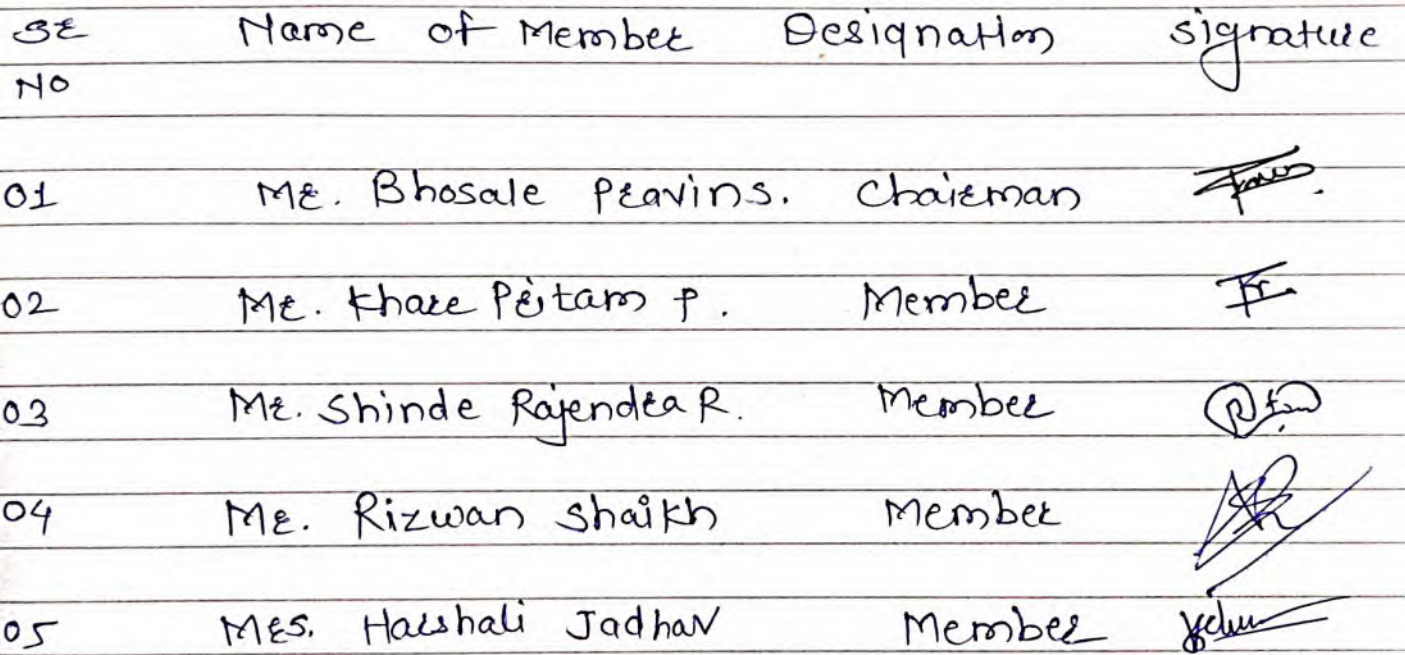 Sr Name of Member Designation signature
No
01 Mr. Bhosale Pravin S. Chairman
02 Mr. Khare Pritam P. Member
03 Mr. Shinde Rajendra R. Member
04 Mr. Rizwan Shaikh Member
05 Mrs. Harshali Jadhav Member